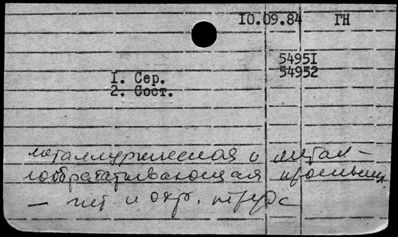 10.09.84 ГН
54951
54952
1. Сер.
2. Сост.
металлургическая и метал-
лообрабатывающая промышл.
— гиг и охр. труда